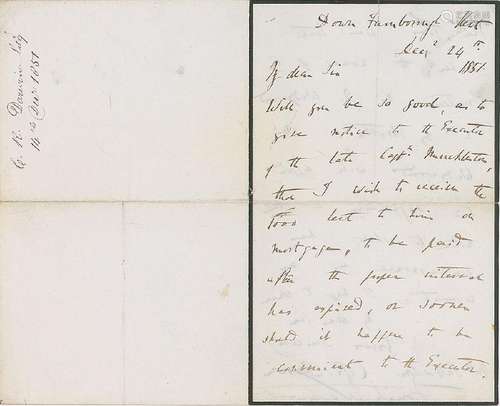 C. R. Darwin Esq
Decr 1851
Down Farnborough Kent
Decr 24th
1851
My dear Sir
Will you be so good, as to
give notice to the Executor
of the late Captn
that I wish to receive the
lent to him on
mortgage, to be paid
after the proper interval
has expired, or sooner
should it happen to be
convenient to the Executor.